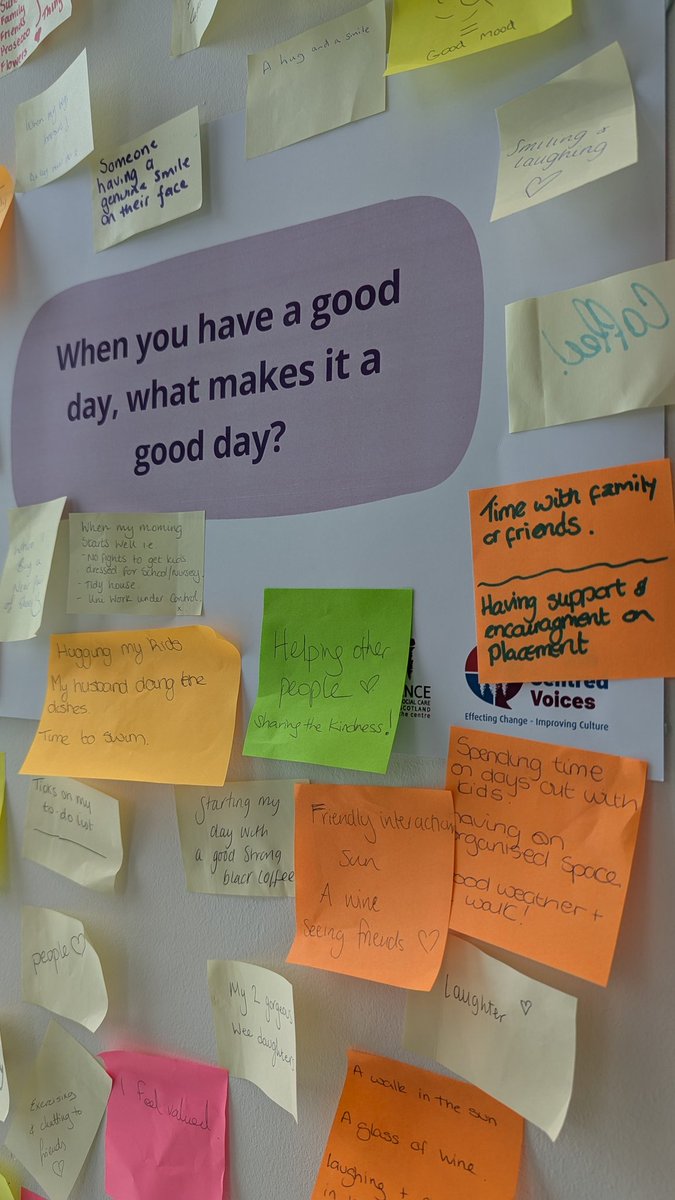 Family
Friends
Prosecco
Flowers
Thing
A hug and a smile
Good mood
Someone
having a
genuine smile
on their face
Smiling &
laughing
Coffee!
When you have a good
day, what makes it a
good day?
When my morning
starts well i.e
- No fights to get kids
dressed for School/Nursery
- Tidy house
- Uni work under control
x
Time with family
or friends.
Having support &
encouragment on
Placement
Hugging my kids
My husband doing the
dishes.
Time to swim.
Helping other
people
Sharing the kindness!
NCE
SOCIAL CARE
SCOTLAND
the centre
Centred
Voices
Effecting Change - Improving Culture
Ticks on my
to-do list
Starting my
day with
a good strong
black coffee
Friendly interaction
Sun
A wine
Seeing friends
Spending time
on days out with
kids.
having an
organised space
good weather +
walk!
people
My 2 gorgeous
wee daughters
Laughter
Exercising
& chatting to
friends
I feel valued
A walk in the sun
A glass of wine.
laughing +